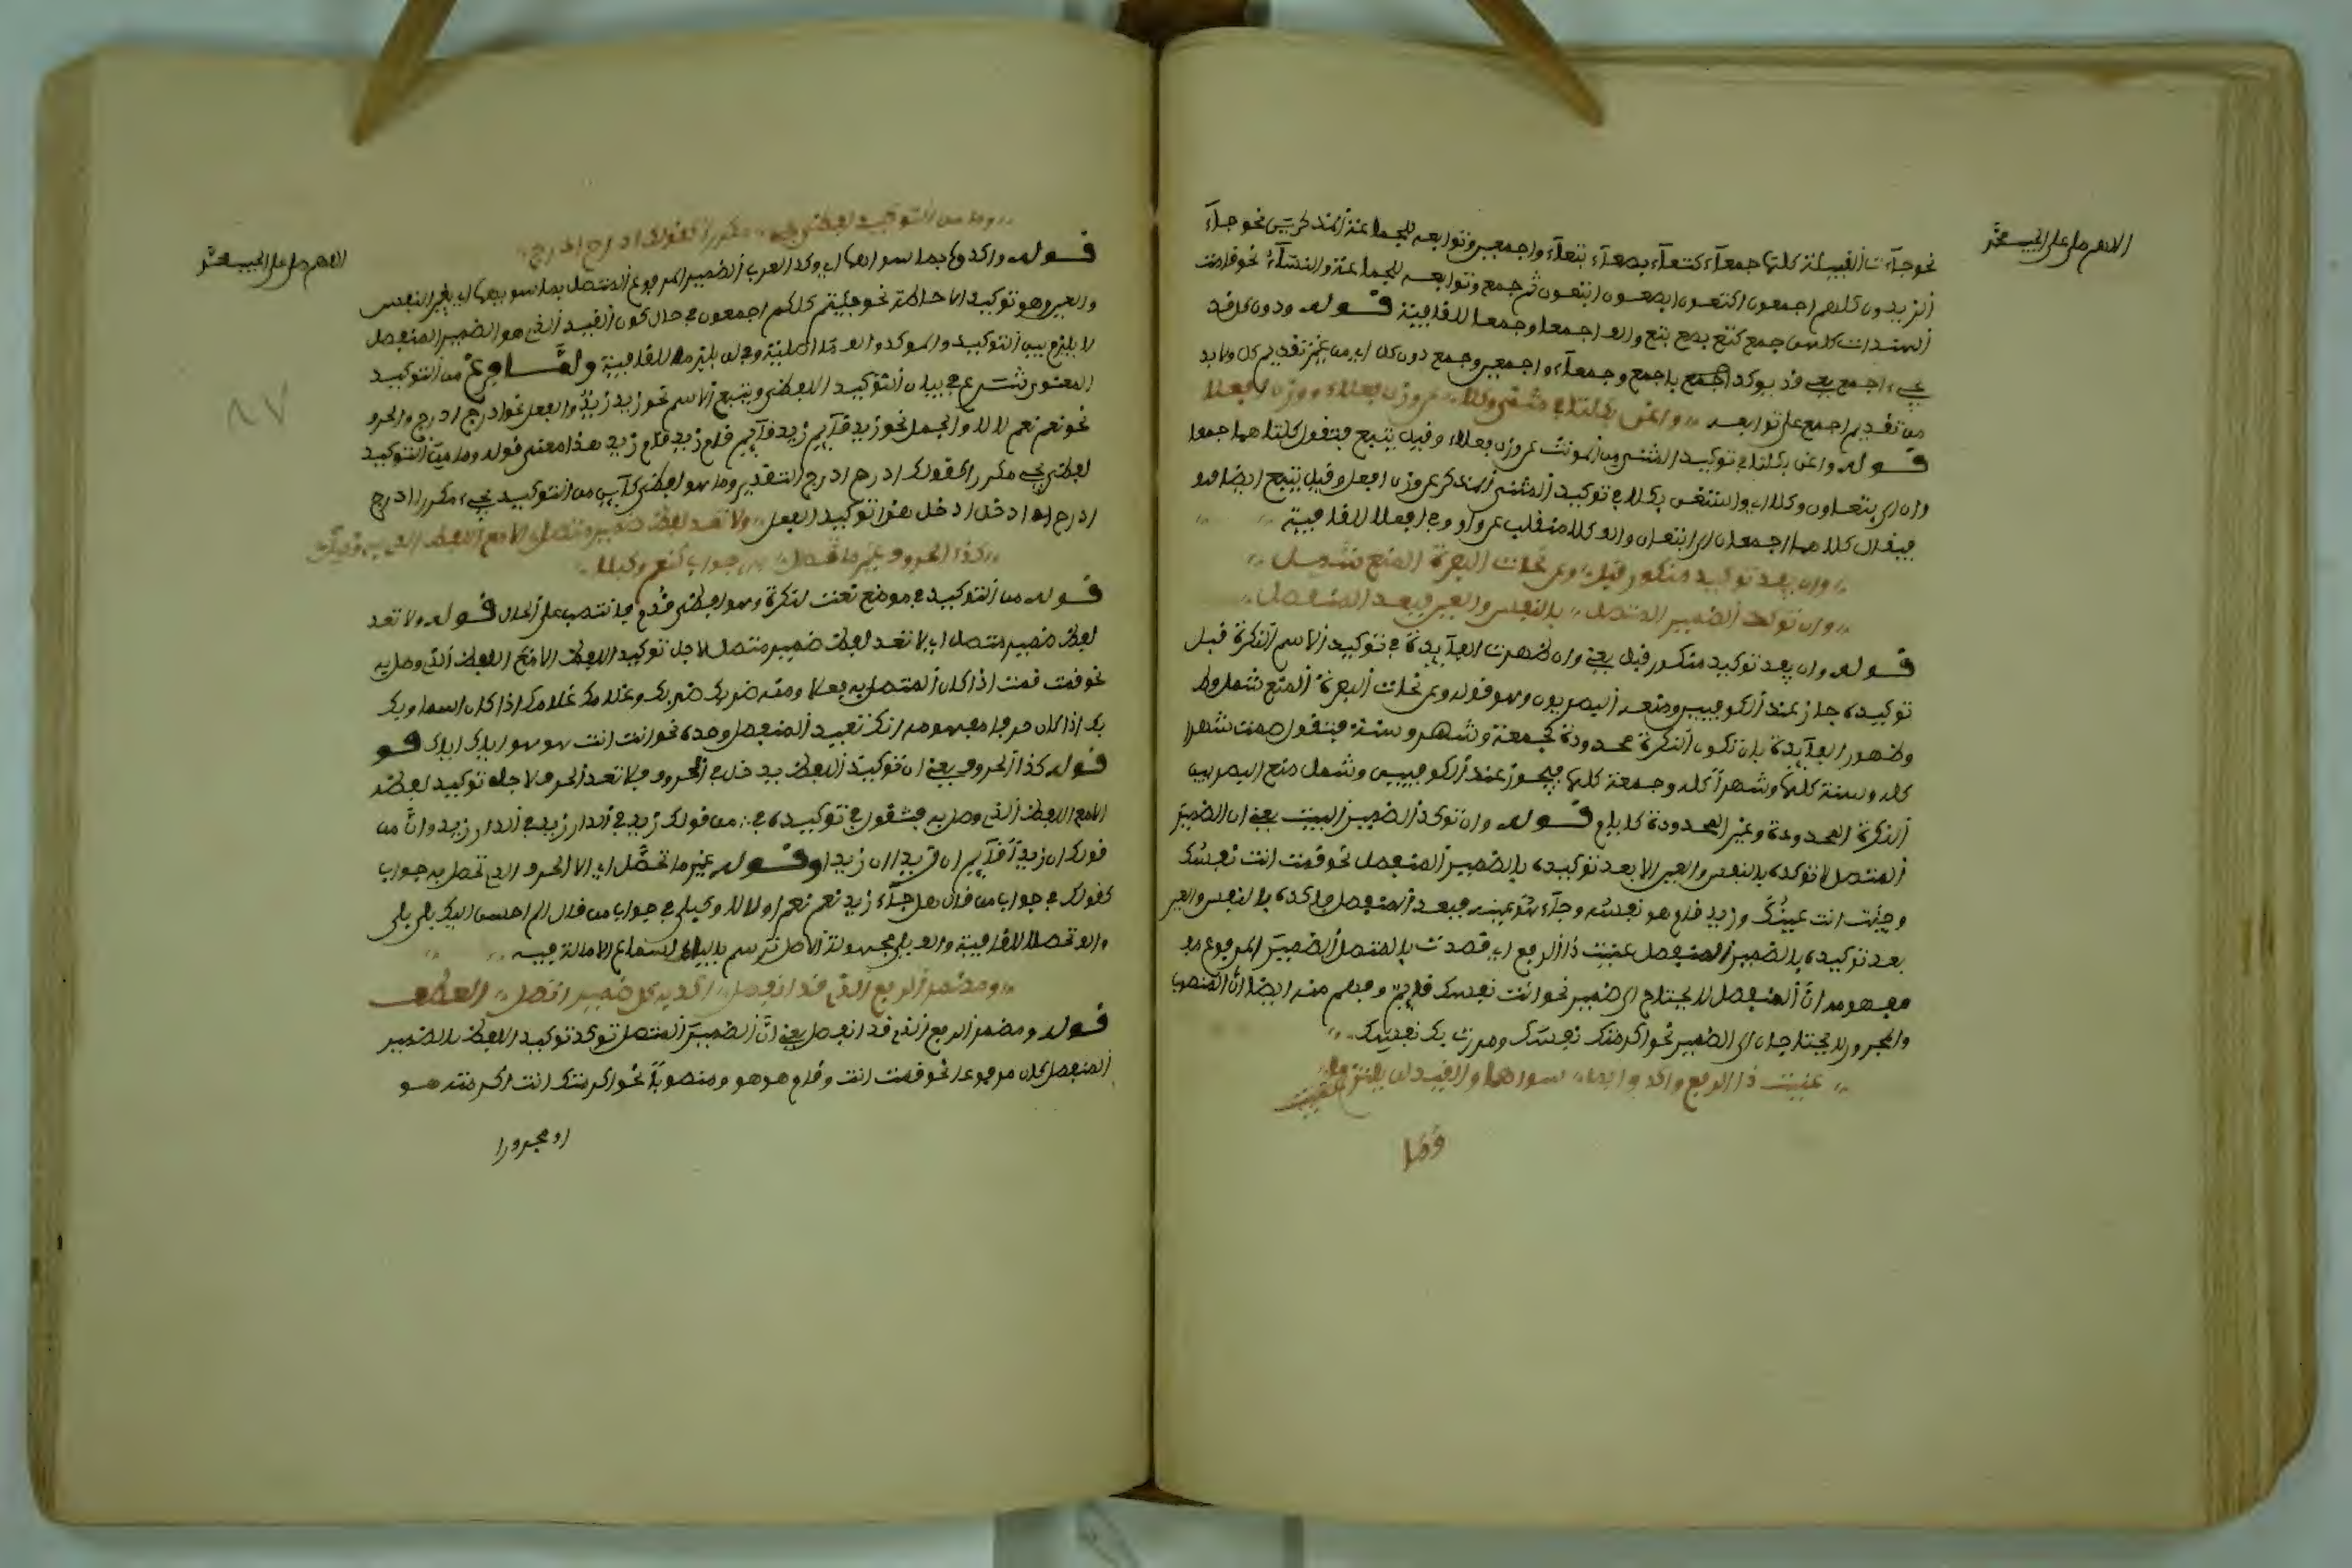 اللهم صل على الحبيب محمد
نحو جآءت القبيلة كلها جمعآء كتعآء بصعآء بتعآء واجمعين وتوابعه للجماعة المذكرين نحو جآء
الزيدون كلهم اجمعون اكتعون ابصعون ابتعون ثم جمع وتوابعه لجماعة النسآء نحو قامت
الهندات كلهن جمع كتع بصع بتع والف اجمعا وجمعا للقافية قوله ودون كل قد
يجيء اجمع يعني قد يوكد باجمع وجمعآء واجمعين وجمع دون كل اي من غير تقديم كل ولا بد
من تقديم اجمع على توابعه واغن بكلتا في مثنى وكلا عن وزن فعلاء ووزن افعلا
قوله واغن بكلتا في توكيد المثنى من المونث عن وزن فعلاء وقيل يتبع فتقول كلتاهما جمعا
وان اي بتعاون وكلا اي واستغن بكلا في توكيد المثنى المذكر عن وزن افعل وقيل يتبع ايضا فهو
فيقال كلاهما اجمعان اي ابتعان والف كلا منقلب عن واو وفي افعلا للقافية
وان يفد توكيد منكور قبل وعن نحات البصرة المنع شمل
وان توكد الضمير المتصل بالنفس والعين فبعد المنفصل
قوله وان يفد توكيد منكور قبل يعني وان ظهرت الفآيدة في توكيد الاسم النكرة قبل
توكيده جاز عند الكوفيين ومنعه البصريون وهو قوله وعن نحات البصرة المنع شمل
وظهور الفآيدة بان تكون النكرة محدودة كجمعة وشهر وسنة فتقول صمت شهرا
كله وسنة كلها وشهرا كله وجمعة كلها فيجوز عند الكوفيين وشمل منع البصريين
النكرة المحدودة وغير المحدودة كلا قوله وان توكد الضمير البيت يعني ان الضمير
المتصل لا توكده بالنفس والعين الا بعد توكيده بالضمير المنفصل نحو قمت انت نفسك
وجئت انت عينك وزيد قام هو نفسه وجآء هو عينه فبعد المنفصل فاكده بالنفس والعين
بعد توكيده بالضمير المنفصل عنيت ذا الرفع اي قصدت بالمتصل الضمير المرفوع
مفهومه ان المنفصل لا يحتاج الى ضمير نحو انت نفسك قايم وفهم منه ايضا ان المنصوب
والمجرور لا يحتاجان الى الضمير نحو اكرمتك نفسك ومررت بك نفسك
عنيت ذا الرفع واكدوا بما سواهما والقيد لن يلتزما
اللهم صل على الحبيب محمد
وما من التوكيد لفظي يجي مكررا كقولك ادرج ادرج
قوله واكدوا بما سواهما اي وكد العرب الضمير المرفوع المتصل بما سويهما اي بغير النفس
والعين وهو توكيد الاحاطة نحو جيتم كلكم اجمعون في حال كون القيد الذي هو الضمير المنفصل
لا يلزم بين التوكيد والموكد والف يلتزما للقافية ولما فرغ من التوكيد
المعنوي شرع في بيان التوكيد اللفظي ويتبع الاسم نحو زيد زيد والفعل نحو ادرج ادرج والحرف
نحو نعم نعم لا لا والجمل نحو زيد قآيم زيد قآيم قام زيد قام زيد هذا معنى قوله وما من التوكيد
لفظي يجي مكررا كقولك ادرج ادرج التقدير وما هو لفظي كآين من التوكيد يجيء مكررا ادرج
ادرج اي ادخل ادخل هذا توكيد الفعل ولا تعد لفظ ضمير متصل الا مع اللفظ الذي به وصل
كذا الحروف غير ما تحصلا به جواب كنعم وكبلى
قوله من التوكيد في موضع نعت لنكرة وهو لفظي قدم فانتصب على الحال قوله ولا تعد
لفظ ضمير متصل اي لا تعد لفظ ضمير متصل لاجل توكيد اللفظ الا مع اللفظ الذي وصل به
نحو قمت قمت اذا كان المتصل به فعلا ومنه ضربك ضربك وغلامك غلامك اذا كان اسما وبك
بك اذا كان حرفا مفهومه انك تعيد المنفصل وحده نحو انت انت هو هو اياك اياك قو
قوله كذا الحروف يعني ان توكيد اللفظ يدخل في الحروف فلا تعد الحرف لاجل توكيد لفظه
الا مع اللفظ الذي وصل به فتقول في توكيد في من قولك زيد في الدار زيد في الدار زيد وان من
قولك ان زيدا قآيم ان زيدا ان زيدا وقوله غير ما تحصلا اي الا الحروف التي تحصل به جواب
كقولك في جواب من قال هل جآء زيد نعم نعم او لا لا وكبلى في جواب من قال الم احسن اليك بلى بلى
والف تحصلا للقافية والف بلى مجهولة الاصل ترسم بالياء لسماع الامالة فيه
ومضمر الرفع الذي قد انفصل اكد به كل ضمير اتصل العطف
قوله ومضمر الرفع الذي قد انفصل يعني ان الضمير المتصل توكد توكيد اللفظ بالضمير
المنفصل كان مرفوعا نحو قمت انت وقام هو هو ومنصوبا نحو اكرمتك انت اكرمته هو
او مجرورا
٨٧